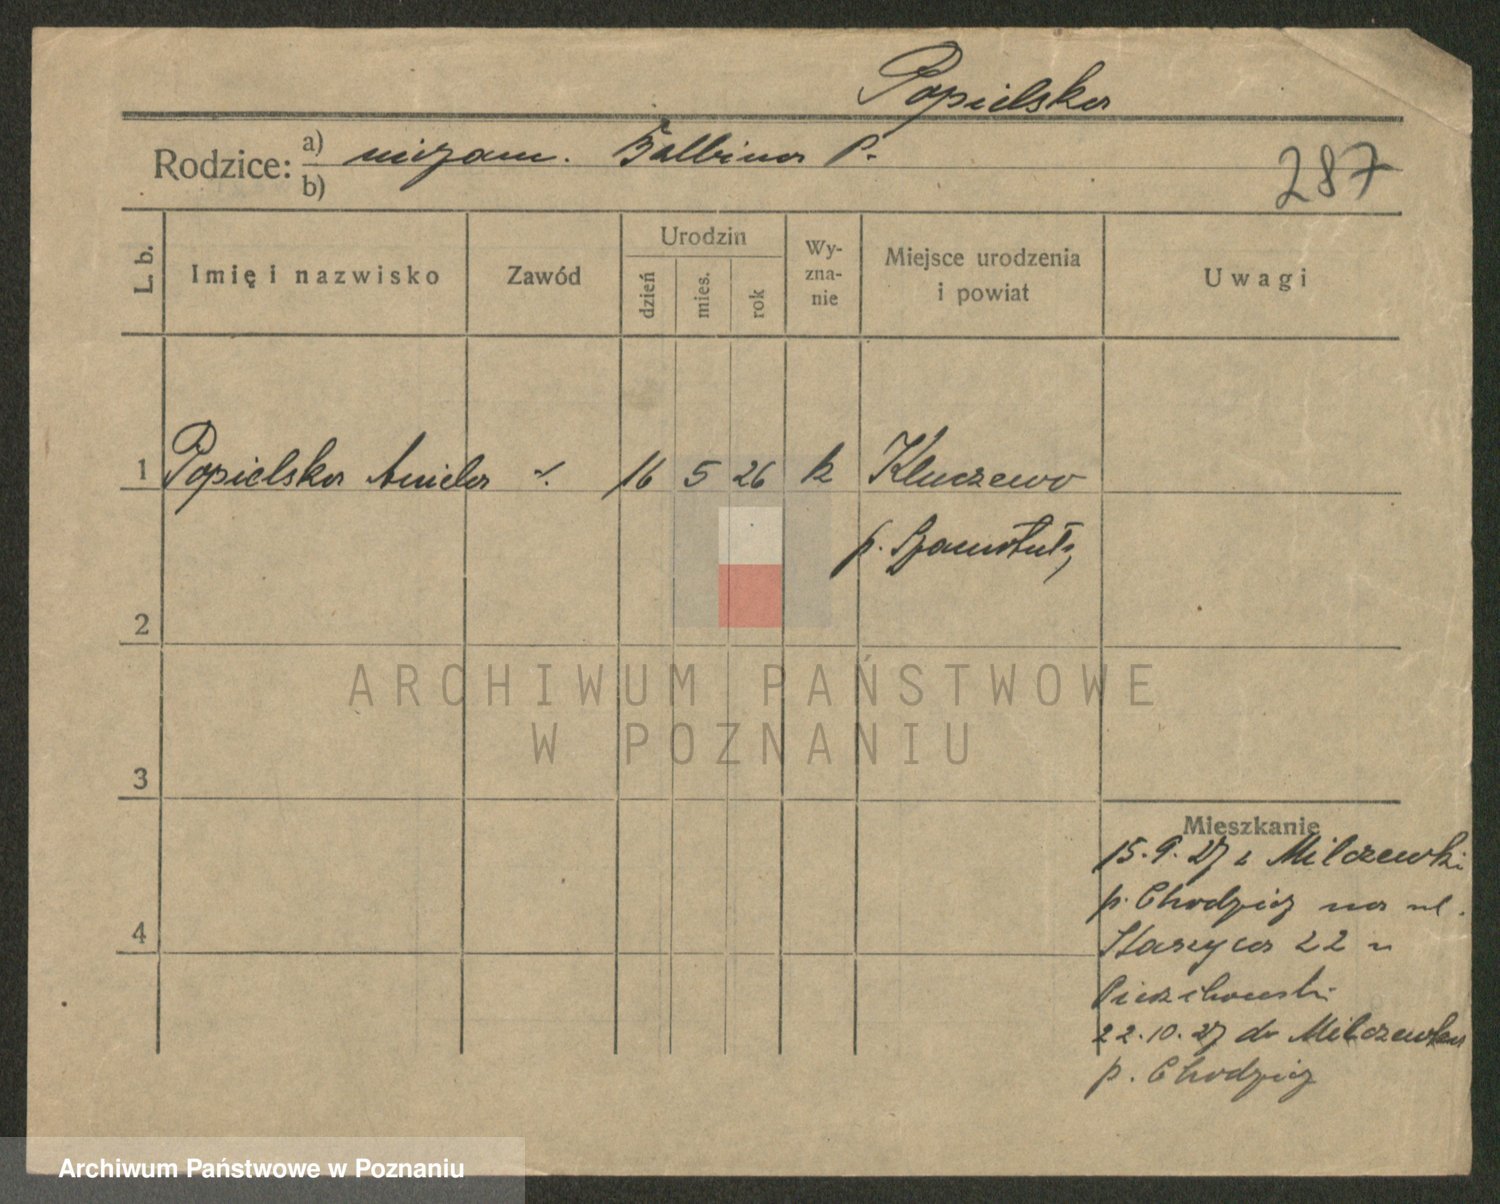 Popielska
Rodzice: a) niezam. Balbina P.
b)
287
L. b.
Imię i nazwisko
Zawód
Urodzin
dzień
mies.
rok
Wy-
zna-
nie
Miejsce urodzenia
i powiat
Uwagi
1 Popielska Aniela ·/. 16 5 26 k Kluczewo
p. Szamotuły
2
ARCHIWUM PAŃSTWOWE
W POZNANIU
3
Mieszkanie
15.9.27 z Milczewki
p. Chodzież na ul.
4
Staszyca 22 u
22.10.27 do
p. Chodzież
Archiwum Państwowe w Poznaniu